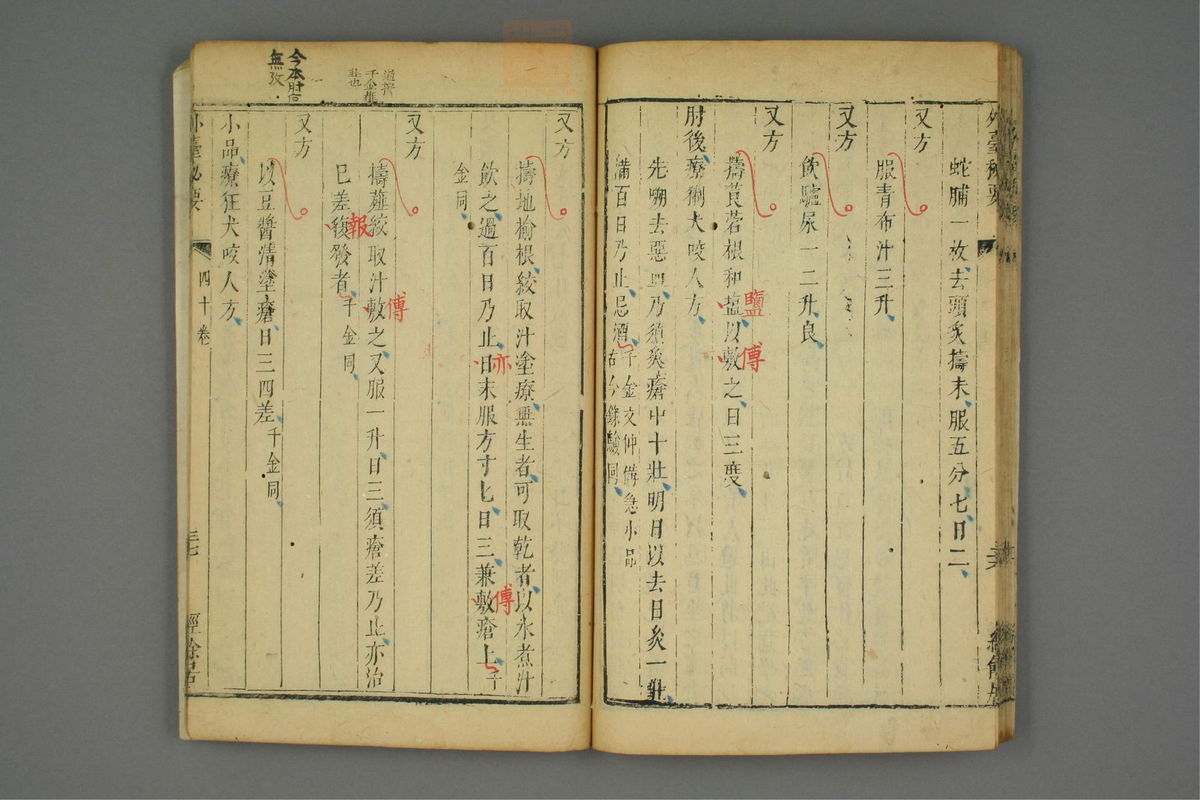 蛇脯一枚去頭炙擣末服五分匕日二
又方
服青布汁三升
又方
飲驢尿一二升良
又方
擣莨菪根和塩以敷之日三度
鹽
傅
肘後療猘犬咬人方
先嗍去惡血乃須炙瘡中十壯明日以去日炙一壯
滿百日乃止忌酒千金文仲備急小品
古今錄驗同
又方
擣地榆根絞取汁塗療無生者可取乾者以水煮汁
飲之過百日乃止日末服方寸匕日三兼敷瘡上千
亦
傅
金同
又方
擣薤絞取汁敷之又服一升日三須瘡差乃止亦治
傅
已差復發者千金同
報
又方
以豆醬清塗瘡日三四差千金同
小品療狂犬咬人方
外臺秘要
四十卷
今本肘后
無攷